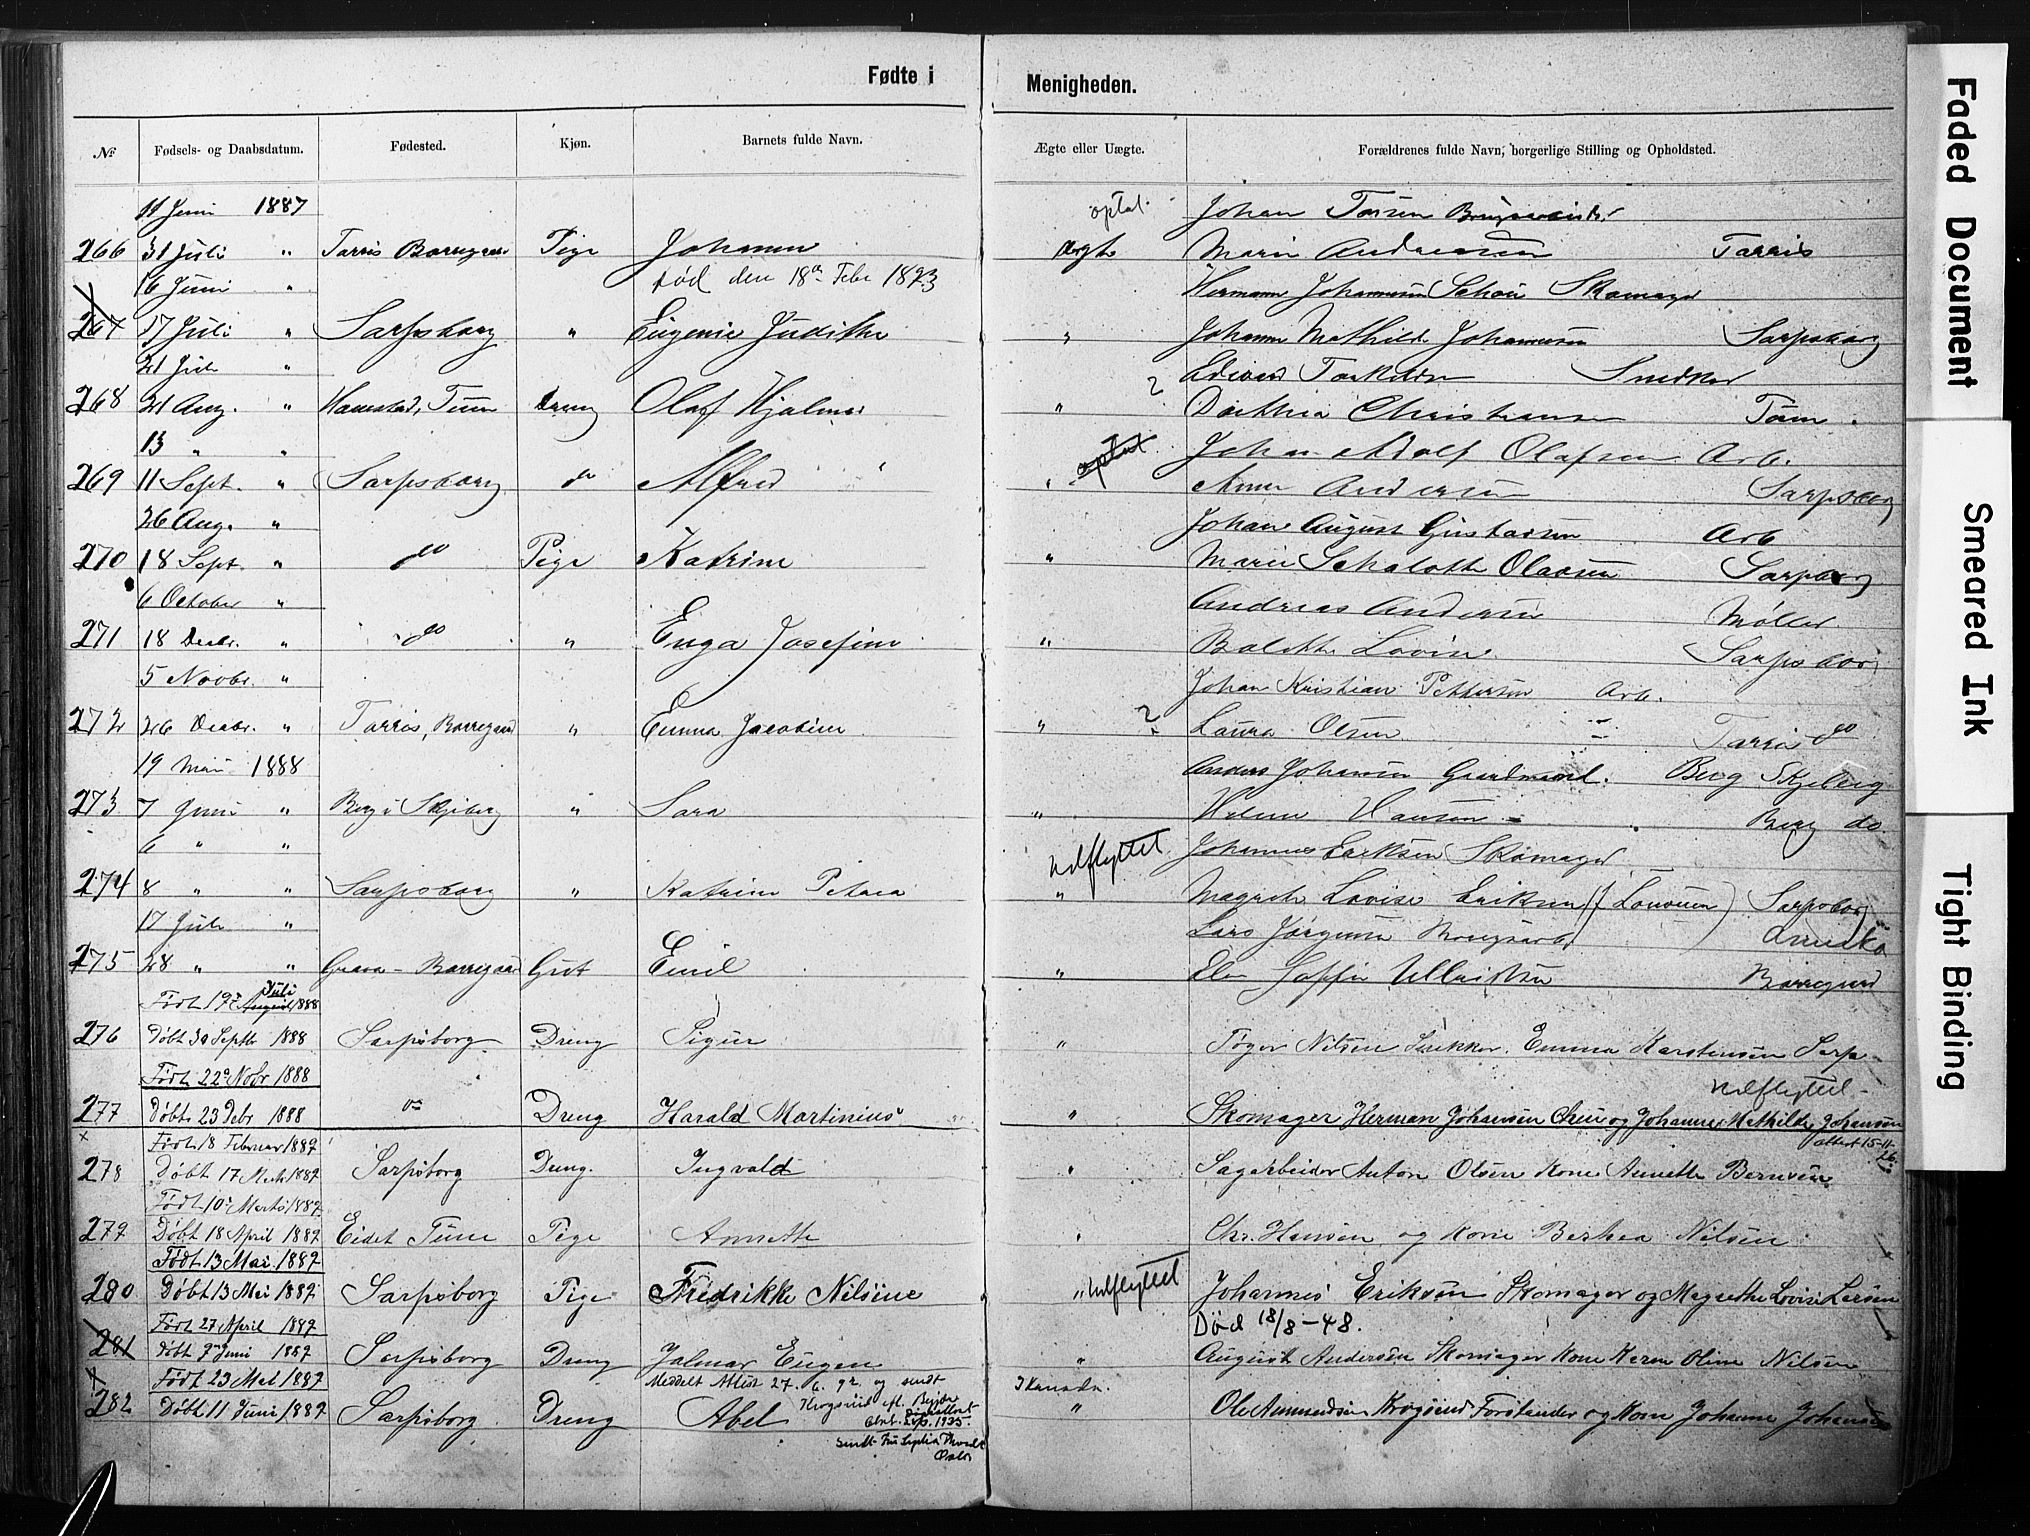 Fødte i
Menigheden.
№ Fødsels- og Daabsdatum. Fødested. Kjøn. Barnets fulde Navn. Ægte eller Uægte. Forældrenes fulde Navn, borgerlige Stilling og Opholdsted.
11 Juni 1887 optat. Johan
266 31 Juli " Tarris Borregaard Pige Johanne Ægte Marie Andreasen Tarris
død den 18de Febr 1893
16 Juni " Hermann Johannesen Schou Skomager
267 17 Juli " Sarpsborg " Eugenie Judithe " Johanne Mathilde Johannesen Sarpsborg
21 Juli " Edvard Torkildsen Snedker
268 21 Aug. " Tune Dreng Olaf Hjalmar " ? Dorthea Christiansen Tune.
13 " " optat Johan Adolf Olafsen Arb.
269 11 Sept. " Sarpsborg do Alfred " Anna Andersen Sarpsborg
26 Aug. " Johan August Gustavsen Arb
270 18 Sept. " do Pige Katrine " Marie Schalotte Olavsen Sarpsborg
6 October " Andreas Andersen Møller
271 18 Decbr. " do " Inga Josefine " Bolette Lovise Sarpsborg
5 Novbr. " Johan Kristian Pettersen Arb.
272 26 Decbr. " Tarris, Borregaard " Emma Jacobine " ? Laura Olsen Tarris do
19 Mai 1888 Anders Johansen Gaardmand. Berg Skjeberg
273 7 Juni " Berg i Skjeberg " Sara " Hansen Berg do.
6 " " Udflyttet Johannes Eriksen Skomager
274 8 " " Sarpsborg " Katrine Petrea " Magrete Lovise Eriksen Sarpsborg
17 Juli " Lars Jørgensen Amerika
275 28 " " Borregaard Gut Emil " Borregaard
Født 19de August Juli 1888
276 Døbt 30 Septb 1888 Sarpsborg Dreng Sigur " Nilsen Emma Karstensen Sarp
Født 22de Nobr 1888 Udflyttet
277 Døbt 23 Debr 1888 do Dreng Harald Martinius " Skomager Herman Johansen og Johanne Mathilde Johansen
Født 18 Februar 1889 attest 15-11-26.
278 Døbt 17 Marts 1889 Sarpsborg Dreng. Ingvald " Sagarbeider Anton Olsen Kone Annette Berntsen
Født 10de Marts 1889
279 Døbt 18 April 1889 Eidet Tune Pige Annette " Chr. Hansen og Kone Berthea Nilsen
Født 13 Mai 1889
280 Døbt 13 Mai 1889 Sarpsborg Pige Fredrikke Nilsine " Udflyttet Johannes Eriksen Skomager og Magrethe Lovise Larsen
Født 27 April 1889 Død 18/8-48.
281 Døbt 9 Juni 1889 Sarpsborg Dreng Jalmar Eugen " August Andersen Skomager Kone Karen Oline Nilsen
Født 23 Mai 1889 Meddelt Attest 27. 6. 92. og sendt I Kanada.
282 Døbt 11 Juni 1889 Sarpsborg Dreng Abel " Ole Amundsen Krogsrud Forstander og Kone Johanne Johansen
1935.
Sendt Fru Lydia
Oslo
Faded Document
Smeared Ink
Tight Binding